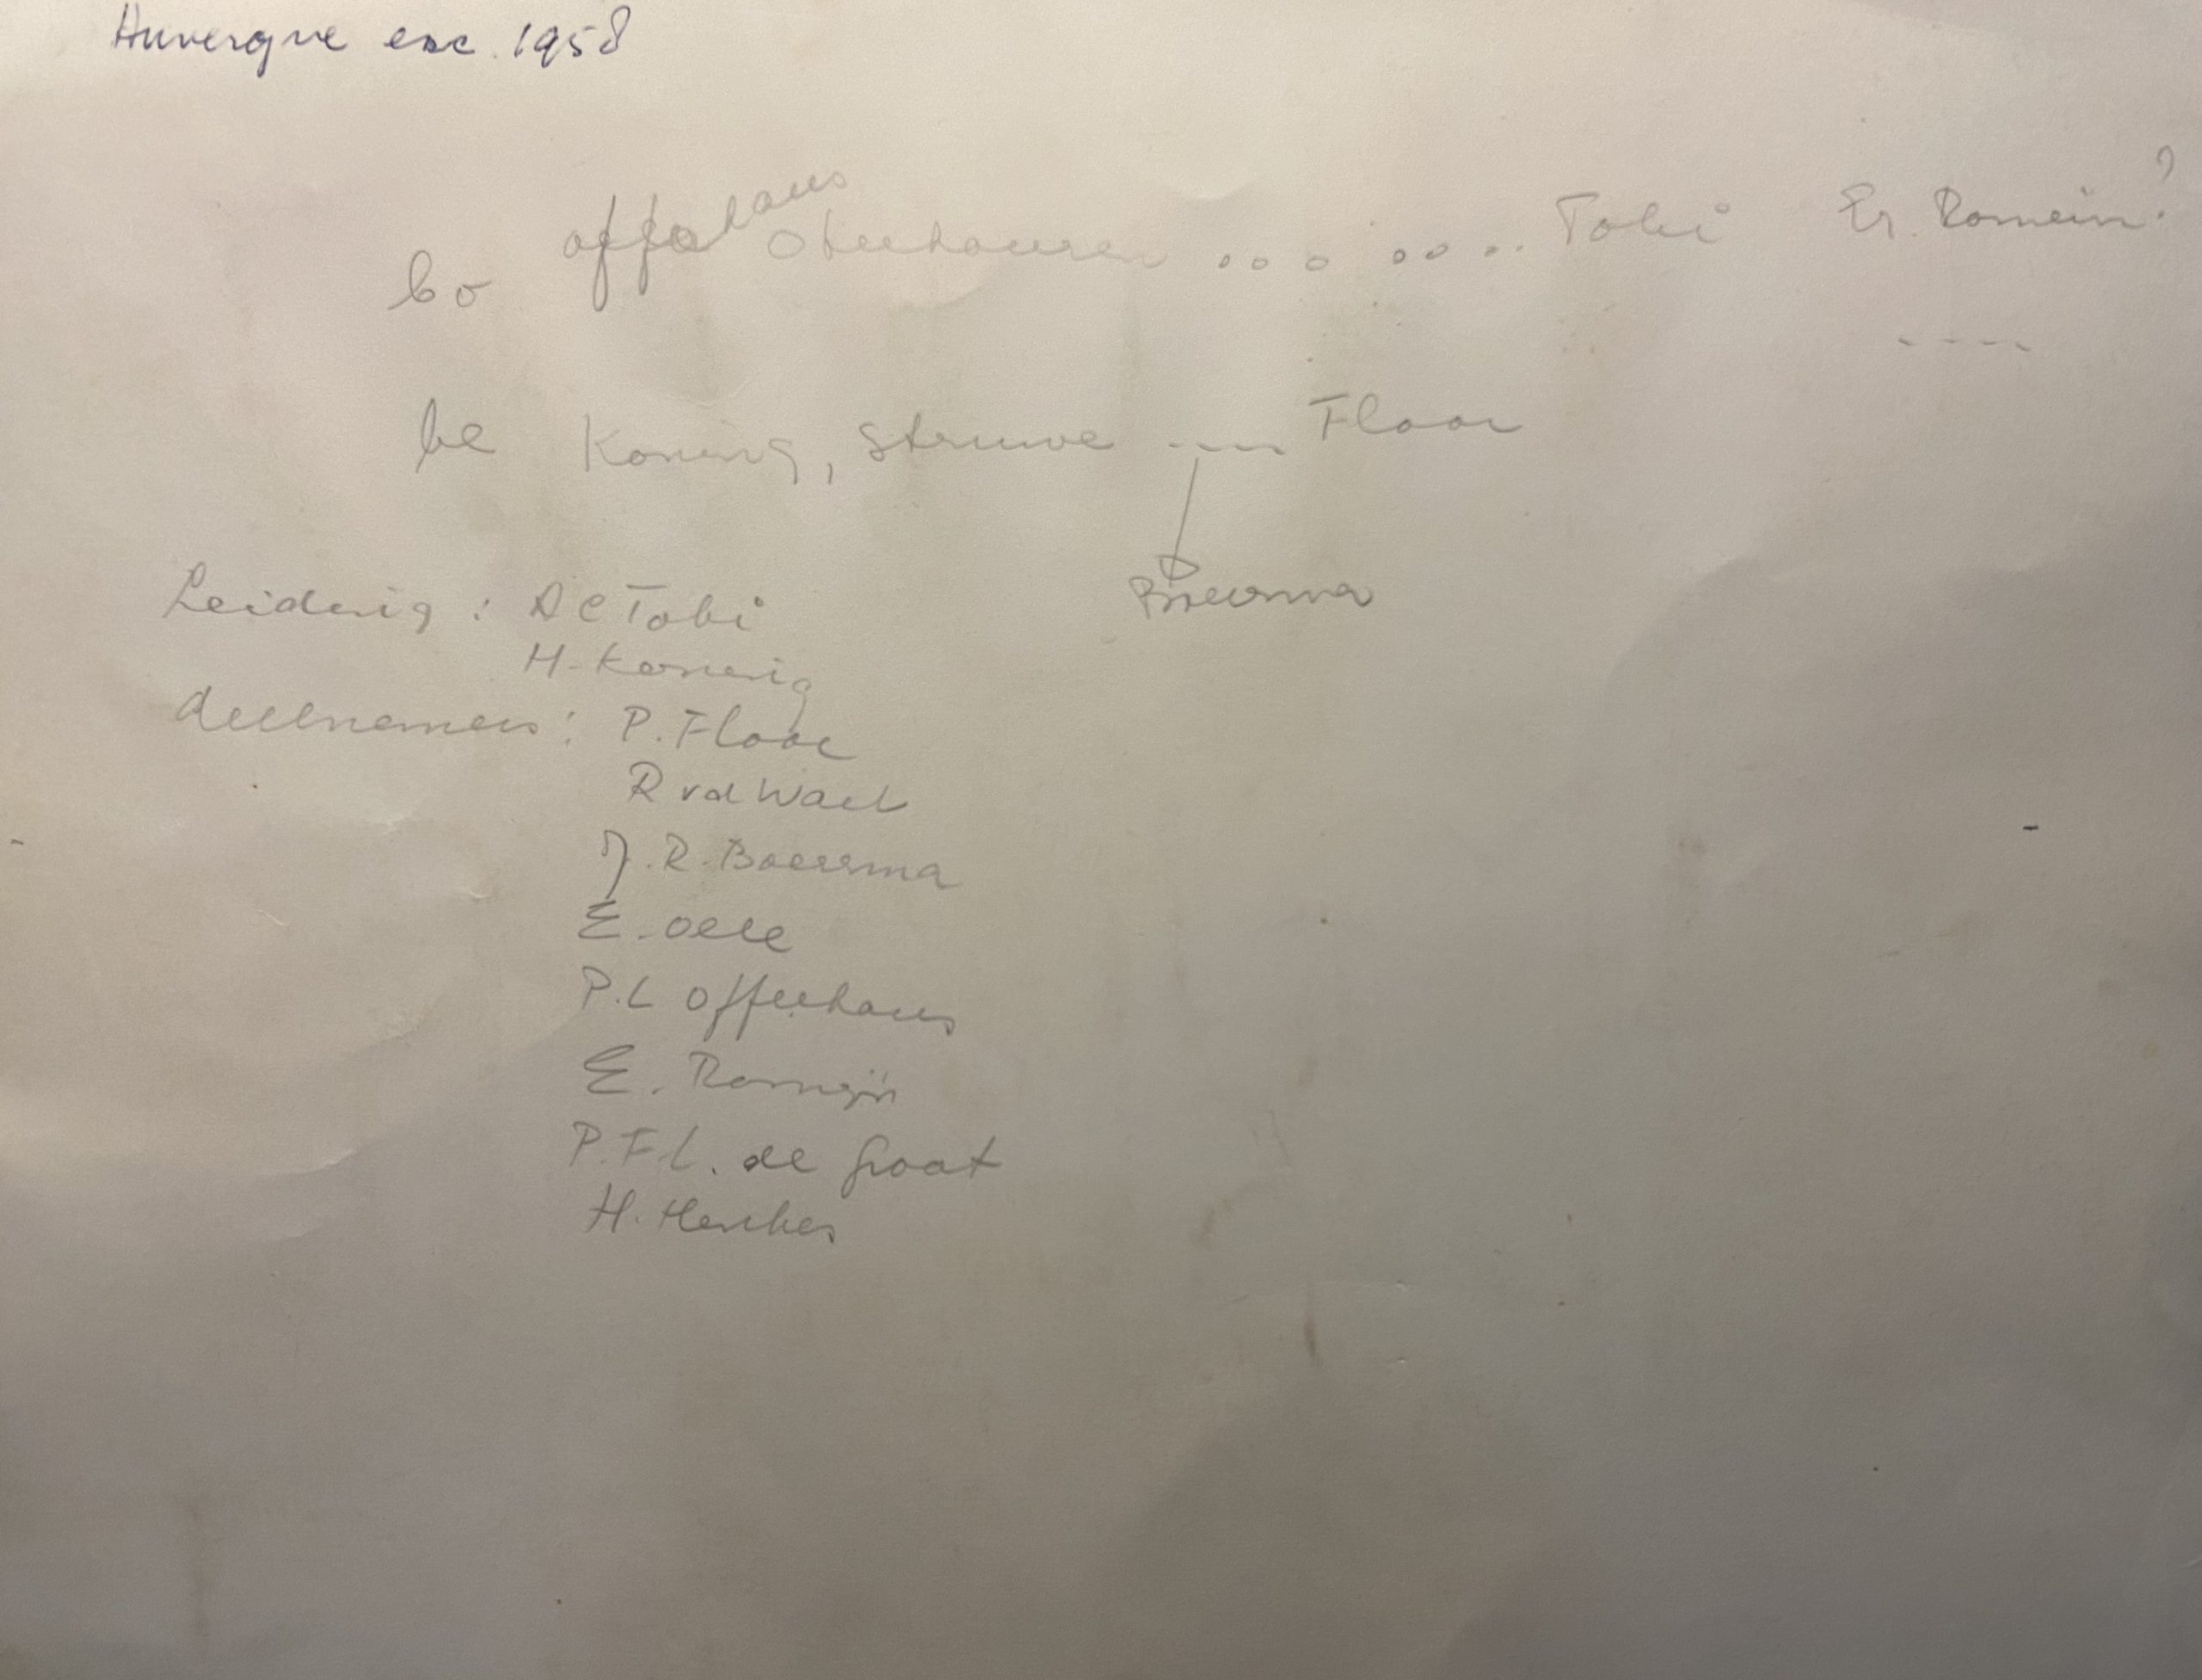 Auvergne exc. 1958
bo offehaus Oberhausen ... .. .. Tobi Er. Romein?
----
be Koning, Struwe ---- Floor
Boersma
Leiding: A C Tobi
H. Koning
deelnemers: P. Floor
R vd Wael
J. R. Boersma
E. Oele
P. L Offerhaus
E. Romijn
P. F. L. de Groot
H. Henkes